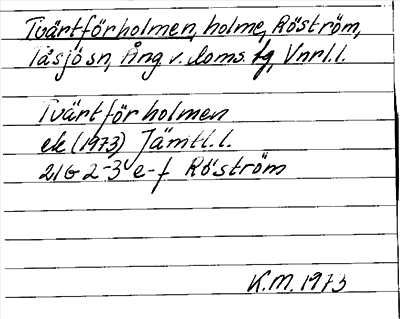 Tvärtförholmen, holme, Röström,
Tåsjö sn, Ång v. doms. fg, Vnrl.l.
Tvärtför holmen
ek (1973) Jämtl. l.
21G 2-3 e-f Röström
K.M. 1973